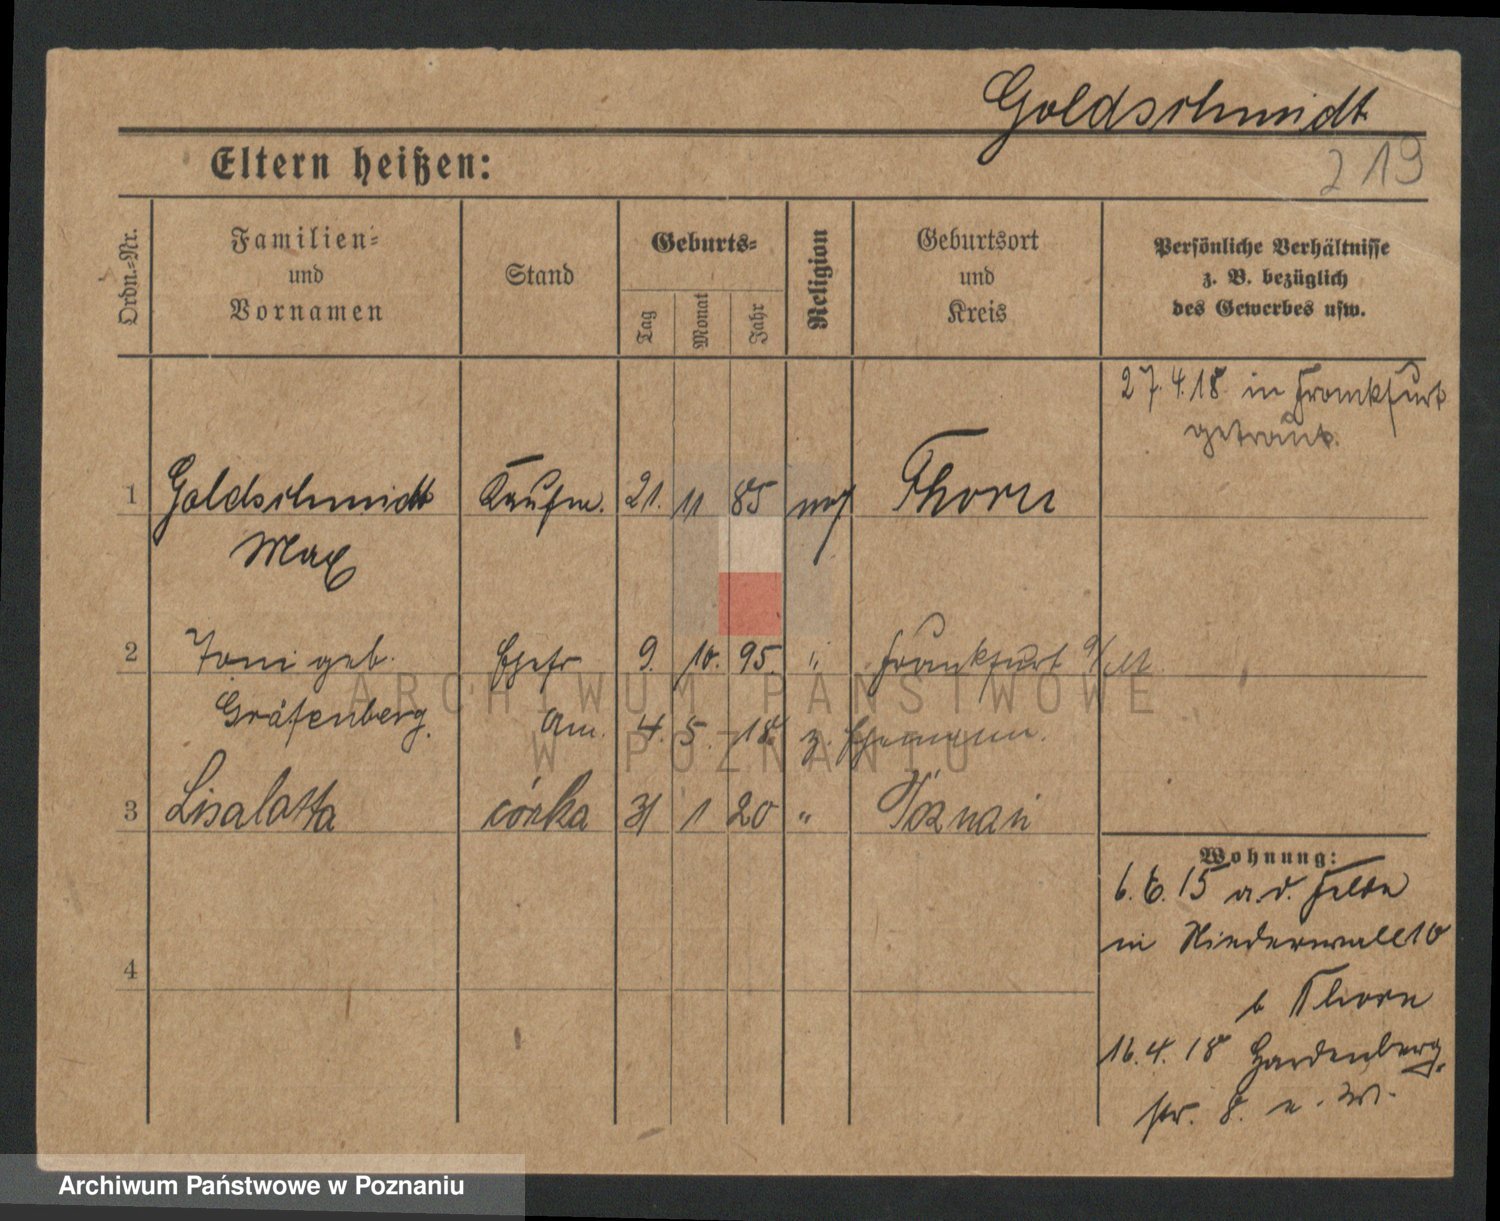 Goldschmidt
219
Eltern heißen:
Ordn.=Nr.
Familien=
und
Vornamen
Stand
Geburts=
Tag
Monat
Jahr
Religion
Geburtsort
und
Kreis
Persönliche Verhältnisse
z. B. bezüglich
des Gewerbes usw.
27.4.18 in Frankfurt
getraut.
1 Goldschmidt Kaufm. 21. 11 85 mos Thorn
Max
2 Toni geb. Ehefr 9. 10. 95. " Frankfurt a/M.
Gräfenberg. Am. 4. 5. 18. z. Ehemann.
3 Lisalotta córka 31 1 20 " Poznań
Wohnung:
6. 6. 15 a. d. Felde
in Niederwall 10
b Thorn
4
16.4.18 Hardenberg
str. 8. e. W.
ARCHIWUM PAŃSTWOWE
W POZNANIU
Archiwum Państwowe w Poznaniu